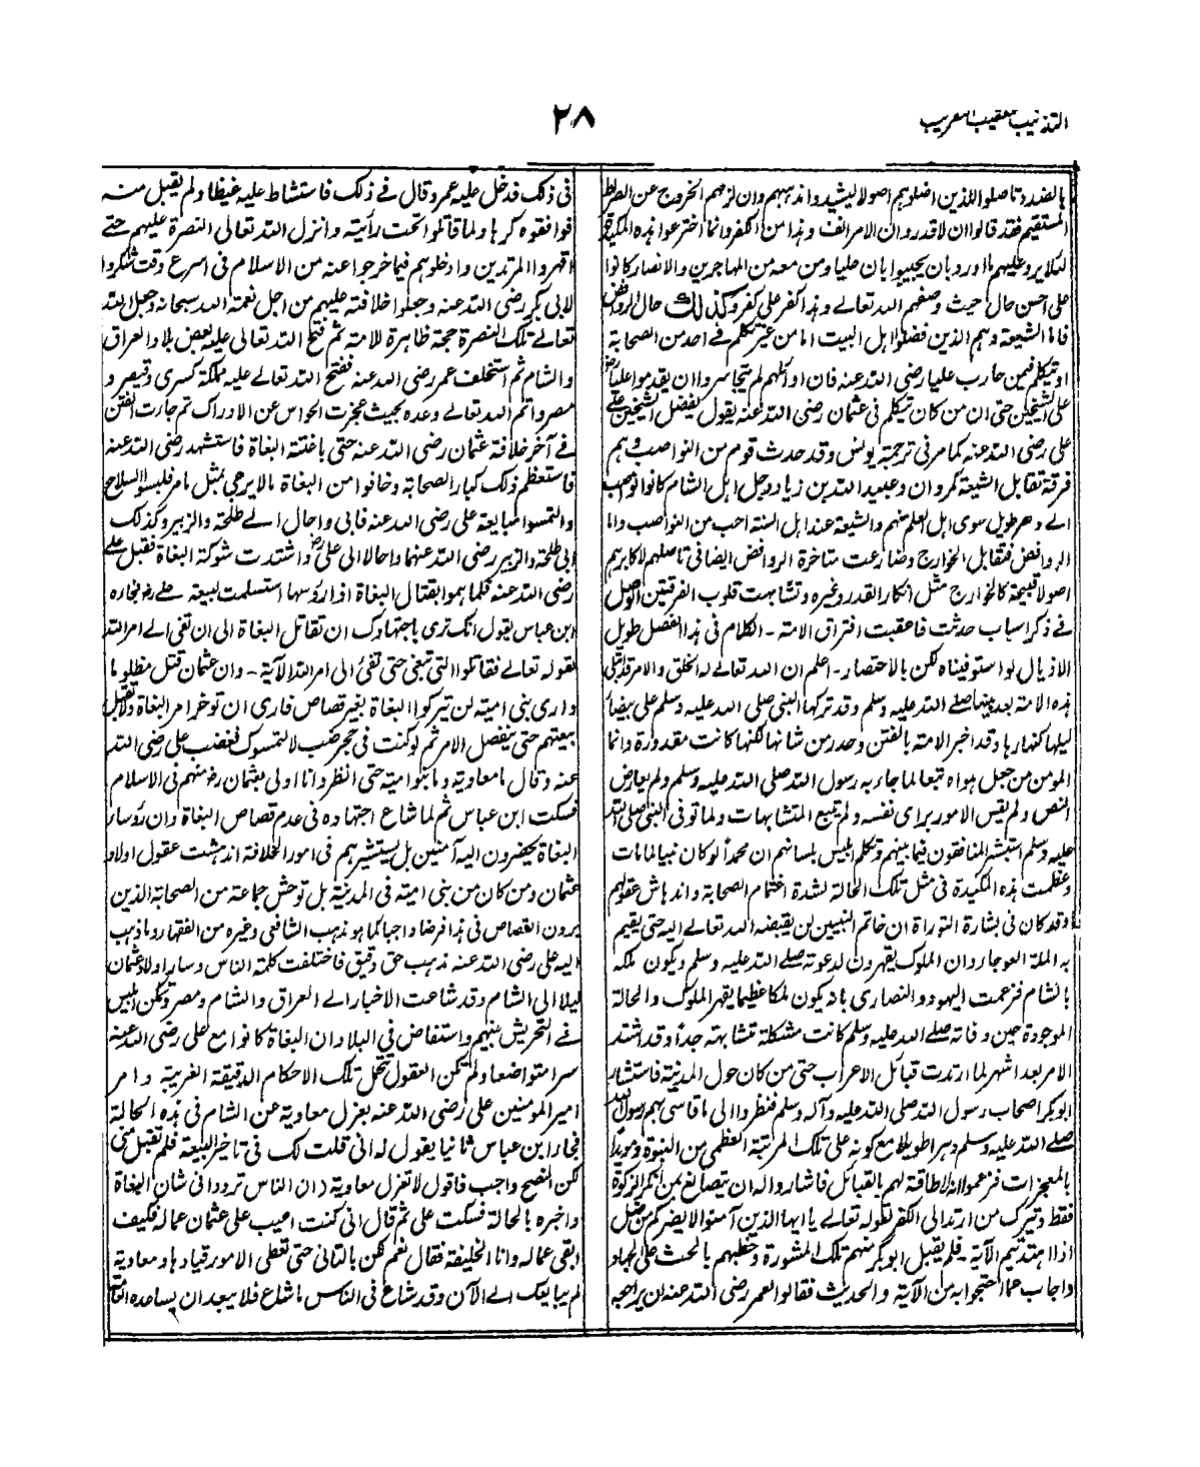 التذنيب لتعقيب التقريب
٢٨
بالضد وتاصلوا الذين اضلوهم اصولا ليشيدوا مذهبهم وان لزمهم الخروج عن الصراط
المستقيم فقد قالوا ان لا قدر وان الامر انف وهذا من الكفر وانما اخترعوا هذه المكيدة
لئلا يرد عليهم ما اورد بان يجيبوا بان عليا ومن معه من المهاجرين والانصار كانوا
على احسن حال حيث وصفهم الله تعالے وهذا كفر على كفر وكذلك حال الروافض
فاما الشيعة وهم الذين فضلوا اهل البيت اما من غير تكلم فے احد من الصحابة
او تكلم فيمن حارب عليا رضى الله عنه فان اوائلهم لم يتجاسروا ان يقدموا عليا
على الشيخين حتى ان من كان تيكلم فى عثمان رضى الله عنه يقول بفضل الشيخين علے
على رضى الله عنه كما مر فى ترجمة يونس وقد حدث قوم من النواصب وهم
فرقة تقابل الشيعة كمروان وعبيد الله بن زياد وجل اهل الشام كانوا نواصب
الے دهر طويل سوى اهل العلم منهم والشيعة عند اهل السنة احب من النواصب واما
الروافض فتقابل الخوارج وضارعت متاخرة الروافض ايضا فى تاصلهم لاكابرهم
اصولا قبيحة كالخوارج مثل انكار القدر وغيره وتشابهت قلوب الفرقتين الوصل
فے ذكر اسباب حدثت فاعقبت افتراق الامة - الكلام فى هذا الفصل طويل
الاذيال لو استوفيناه لكن بالاختصار - اعلم ان الله تعالے له الخلق والامر قد ابتلى
هذه الامة بعد نبيها صلے الله عليه وسلم وقد تركها النبى صلى الله عليه وسلم على بيضاء
ليلها كنهارها وقد اخبر الامة بالفتن وحذر من شانها لكنها كانت مقدورة وانما
المومن من جعل هواه تبعا لما جاء به رسول الله صلى الله عليه وسلم ولم يعارض
النص ولم يقس الامور براى نفسه ولم يتبع المتشابهات ولما توفى النبى صلى الله
عليه وسلم استبشر المنافقون فيما بينهم وتكلم ابليس بلسانهم ان محمداً لو كان نبيا لما مات
وعظمت هذه المكيدة فى مثل تلك الحالة لشدة اغتمام الصحابة واندهاش عقولهم
وقد كان فى بشارة التوراة ان خاتم النبيين لن يقبضه الله تعالے اليه حتى يقيم
به الملة العوجاء وان الملوك يقهرون لدعوته صلے الله عليه وسلم ويكون ملكه
بالشام فزعمت اليهود والنصارى بانه يكون ملكا عظيما يقهر الملوك والحالة
الموجودة حين وفاته صلے الله عليه وسلم كانت مشكلة متشابهة جداً وقد اشتد
الامر بعد اشهر لما ارتدت قبائل الاعراب حتى من كان حول المدينة فاستشار
ابو بكر اصحاب رسول الله صلى الله عليه وآله وسلم فنظروا الى ما قاسى بهم رسول الله
صلے الله عليه وسلم دهرا طويلا مع كونه على تلك المرتبة العظمى من النبوة ومويدا
بالمعجزات فزعموا انه لا طاقة لهم بالقبائل فاشاروا له ان يتصالغ بمن انكر الزكوة
فقط ويترك من ارتد الى الكفر لقوله تعالے يا ايها الذين آمنوا لا يضركم من ضل
اذا اهتديتم الآية - فلم يقبل ابو بكر منهم تلك المشورة وخطبهم بالحث على الجهاد
واجاب عما احتجوا به من الآية والحديث فقالوا لعمر رضى الله عنه ان يراجعه
فى ذلك فدخل عليه عمر وقال فے ذلك فاستشاط عليه غيظا ولم يقبل منه
فوافقوه كرها ولما قاتلوا تحت رأيته وانزل الله تعالى النصرة عليهم حتے
اقهروا المرتدين وادخلوهم فيما خرجوا عنه من الاسلام فى اسرع وقت شكروا
لابى بكر رضى الله عنه وجعلوا خلافته عليهم من اجل نعمة الله سبحانه وجعل الله
تعالے تلك النصرة حجة ظاهرة للامة ثم فتح الله تعالى عليه بعض بلاد العراق
والشام ثم استخلف عمر رضى الله عنه ففتح الله تعالے عليه مملكة كسرى وقيصر و
مصر واتم الله تعالے وعده بحيث عجزت الحواس عن الادراك ثم جاءت الفتن
فے آخر خلافة عثمان رضى الله عنه حتى باغتته البغاة فاستشهد رضى الله عنه
فاستعظم ذلك كبار الصحابة وخافوا من البغاة مالا يرجى بمثل مامر فلبسوا السلاح
والتمسوا لمبايعة على رضى الله عنه فابى واحال الے طلحة والزبير وكذلك
ابى طلحة والزبير رضى الله عنهما واحالا الى على رض واشتدت شوكة البغاة فقبل علے
رضى الله عنه فلما هموا بقتال البغاة اذا رؤسها استسلمت لبيعة علے رض فجاره
ابن عباس يقول انك ترى باجتهادك ان تقاتل البغاة الى ان تفى الے امر الله
لقوله تعالے فقاتلوا التى تبغى حتى تفئ الى امر الله الآية - وان عثمان قتل مظلوما
وارى بنى امية لن يتركوا البغاة بغير قصاص فارى ان توخر امر البغاة ولا تقبل
بيعتهم حتى ينفصل الامر ثم لو كنت فى جحر ضب لالتمسوك فغضب على رضى الله
عنه وقال ما معاوية وما بنوا مية حتى انظر وانا اولى بعثمان رض منهم فى الاسلام
فسكت ابن عباس ثم لما شاع اجتهاده فى عدم قصاص البغاة وان رؤسار
البغاة يحضرون اليه آمنين بل يستشيرهم فى امور الخلافة اندهشت عقول اولاد
عثمان ومن كان من بنى امية فى المدينة بل توحش جماعة من الصحابة الذين
يرون القصاص فى هذا فرضا واجبا كما هو مذهب الشافعى وغيره من الفقهاء وما ذهب
اليه على رضى الله عنه مذهب حق دقيق فاختلفت كلمة الناس وسار اولاد عثمان
ليلا الى الشام وقد شاعت الاخبار الے العراق والشام ومصر وتمكن ابليس
فے التحريش بينهم واستفاض فى البلاد ان البغاة كانوا مع على رضى الله عنه
سرا متواضعا ولم تكن العقول تتحمل تلك الاحكام الدقيقة الغريبة وامر
امير المومنين على رضى الله عنه بعزل معاوية عن الشام فى هذه الحالة
فجاء ابن عباس ثانيا يقول له انى قلت لك فى تاخير البيعة فلم تقبل منى
لكن النصح واجب فاقول لا تعزل معاوية ان الناس ترددوا فى شان البغاة
واخبره بالحالة فسكت على ثم قال انى كنت اعيب على عثمان عماله فكيف
ابقى عماله وانا الخليفة فقال نعم لكن بالتانى حتى تعطى الامور قيادها ومعاوية
لم يبايعك الے الآن وقد شاع فى الناس ما شاع فلا يبعد ان يساعده